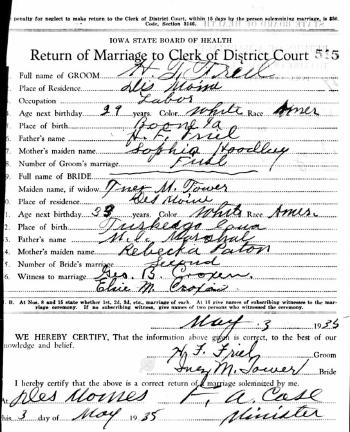 penalty for neglect to make return to the Clerk of District Court, within 15 days by the person solemnizing marriage, is $50.
Code, Section 3146.
IOWA STATE BOARD OF HEALTH
Return of Marriage to Clerk of District Court 515
Full name of GROOM H. F. Friel
Place of Residence Des Moines
Occupation Labor
Age next birthday 29 years. Color White Race Amer
Place of birth Boone Ia
Father's name H. F. Friel
Mother's maiden name Sophia Hoodley
Number of Groom's marriage First
Full name of BRIDE
Maiden name, if widow Inez M. Tower
Place of residence Des Moines
Age next birthday 33 years. Color White Race Amer.
Place of birth Tuskeego Iowa
Father's name Marshal
Mother's maiden name Rebecka Paton
Number of Bride's marriage Second
Witness to marriage Geo. B Cropen
Elsie M. Cropen
N. B. At Nos. 8 and 15 state whether 1st, 2d, 3d, etc., marriage of each. At 16 give names of subscribing witnesses to the marriage ceremony. If no subscribing witness, give names of two persons who witnessed the ceremony.
May 3 1935
WE HEREBY CERTIFY, That the information above given is correct, to the best of our
knowledge and belief.
H. F. Friel Groom
Inez M. Tower Bride
I hereby certify that the above is a correct return of a marriage solemnized by me.
At Des Moines F. A. Case
this 3 day of May 1935 Minister